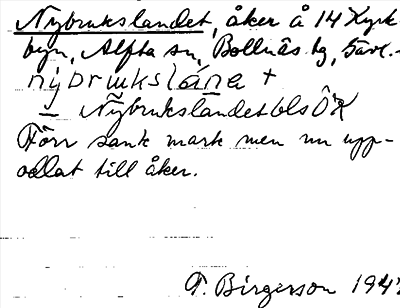 Nybrukslandet, åker å 14 Kyrk-
byn, Alfta sn, Bollnäs tg, Gävl.-
nybrukslána +
— Nybrukslandet bls ÖK
Förr sank mark men nu upp-
odlat till åker.
F. Birgerson 194